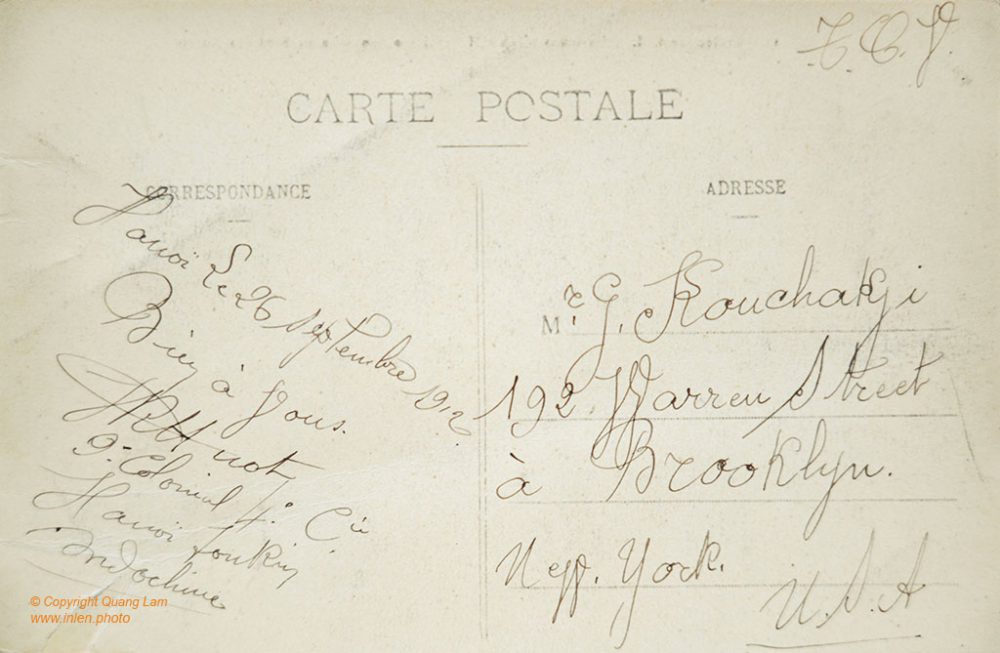 T.C.V.
CARTE POSTALE
CORRESPONDANCE
ADRESSE
Hanoï Le 26 septembre 1912
Bien à Vous.
9e Colonial 4e Cie
Hanoï Tonkin
Indochine
Mr. G. Kouchakji
192 Warren Street
à Brooklyn.
New. York.
U.S.A
© Copyright Quang Lam
www.inlen.photo